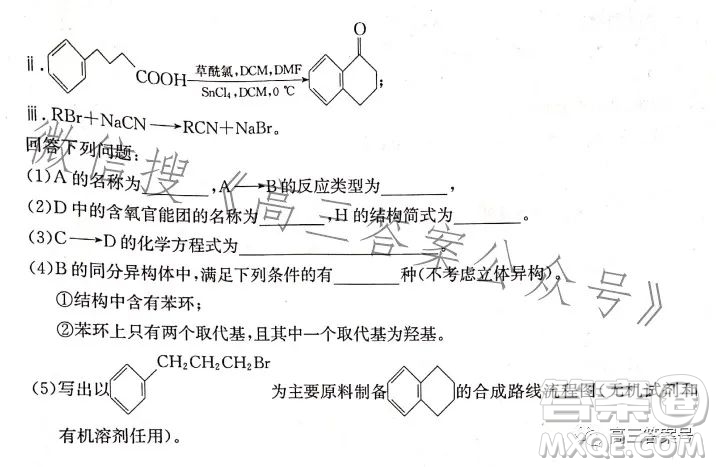 ⅱ. COOH 草酰氯,DCM,DMF SnCl₄,DCM,0 ℃ O ;
ⅲ. RBr+NaCN⟶RCN+NaBr。
回答下列问题:
(1)A 的名称为______,A⟶B 的反应类型为______,
(2)D 中的含氧官能团的名称为______,H 的结构简式为______。
(3)C⟶D 的化学方程式为______。
(4)B 的同分异构体中,满足下列条件的有______种(不考虑立体异构)。
①结构中含有苯环;
②苯环上只有两个取代基,且其中一个取代基为羟基。
CH₂CH₂CH₂Br
(5)写出以 为主要原料制备 的合成路线流程图(无机试剂和
有机溶剂任用)。
微信搜《高三答案公众号》
答案圈
高三答案号
MXQE.COM